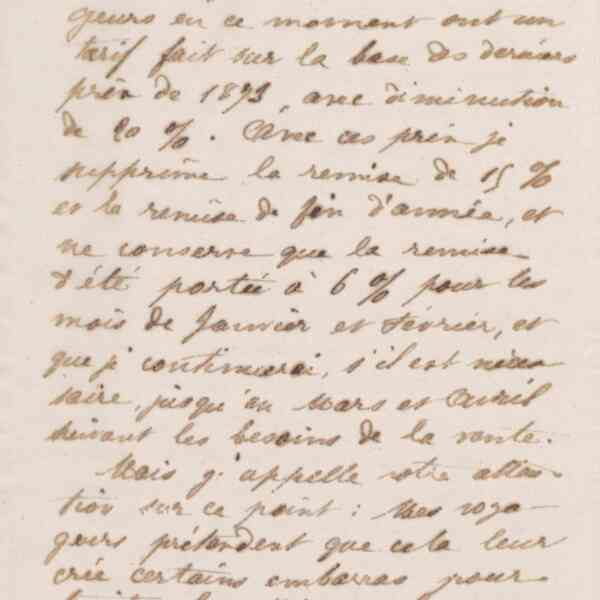 geurs en ce moment ont un
tarif fait sur la base des derniers
prix de 1893, avec diminution
de 20 %. Avec ces prix je
supprime la remise de 15 %
et la remise de fin d'année, et
ne conserve que la remise
d'été portée à 6 % pour les
mois de Janvier et Février, et
que je continuerai, s'il est néces
saire, jusqu'en Mars et Avril
suivant les besoins de la vente.
Mais j'appelle votre atten-
tion sur ce point : Mes voya-
geurs prétendent que cela leur
crée certains embarras pour